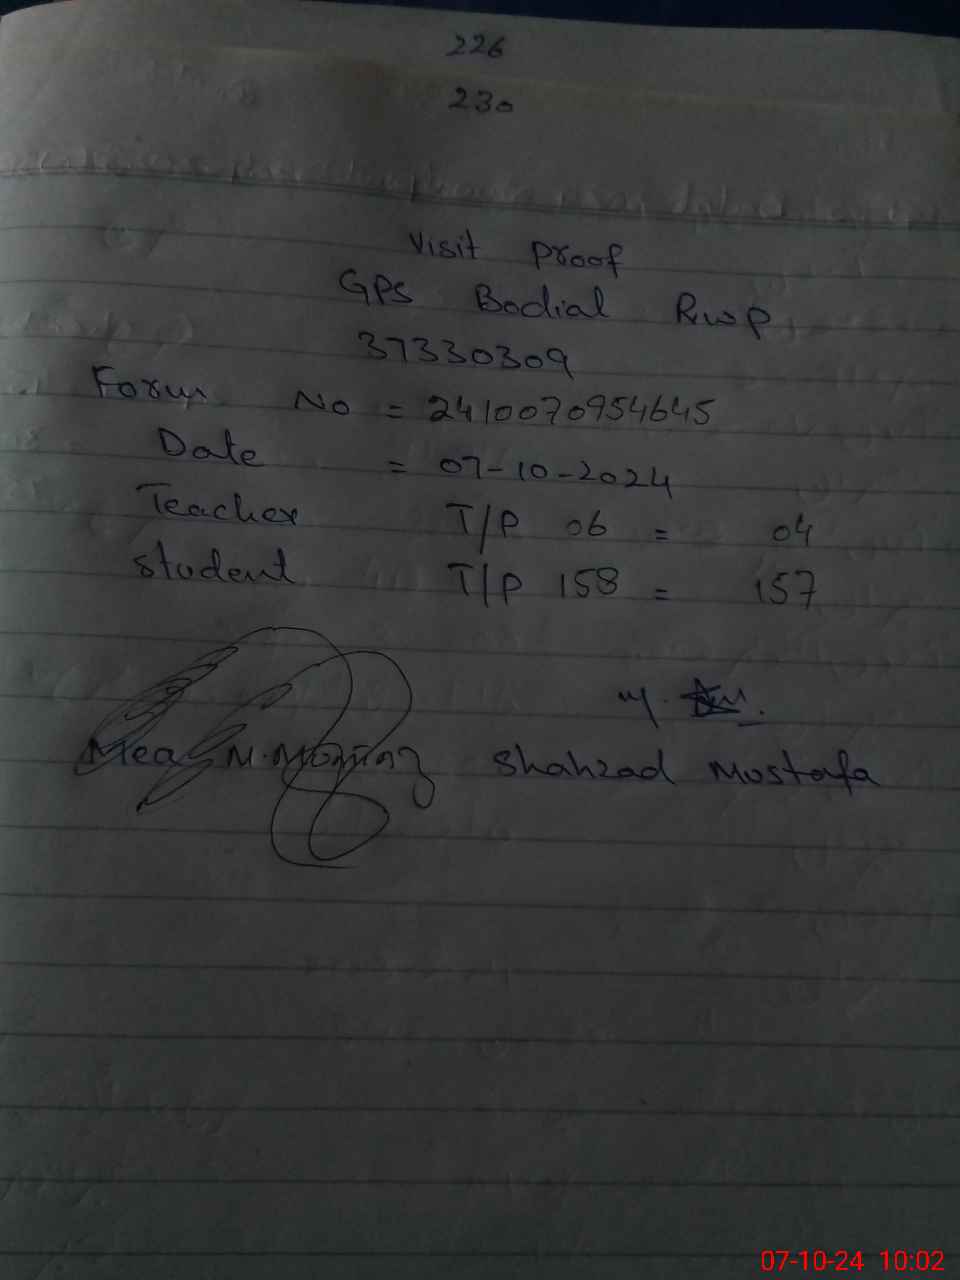 226
230
Visit Proof
GPS Bodial Rwp
37330309
Form No = 2410070954645
Date = 07-10-2024
Teacher T/P 06 = 04
Student T/P 158 = 157
Mea Shahzad Mustafa
07-10-24 10:02